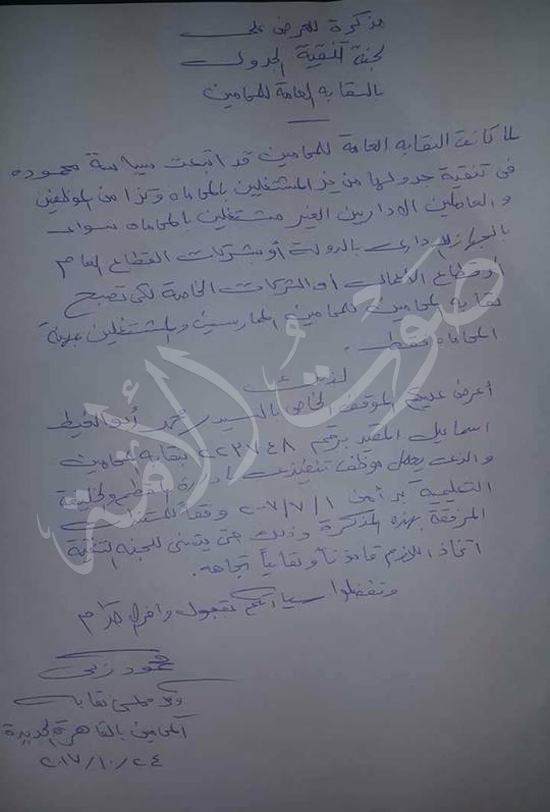 مذكرة للعرض على
لجنة تنقية الجدول
بالنقابه العامة للمحامين
لما كانت النقابه العامة للمحامين قد اتبعت سياسة محموده
فى تنقية جدولها من غير المشتغلين بالمحاماه وكذا من الموظفين
و العاملين الاداريين الغير مشتغلين بالمحاماه سواء
بالجهاز الادارى بالدولة أو بشركات القطاع العام
أو قطاع الأعمال أو الشركات الخاصة لكى تصبح
نقابة المحامين للمحامين الممارسين والمشتغلين بمهنة
المحاماه فقط.
لذلك
أعرض عليكم الموقف الخاص بالسيد محمد أبو الخيط
اسماعيل المقيد برقم ٢٢٣٧٤٨ بنقابة المحامين
والذى يعمل موظف تنفيذى إدارة
التعليمية ٢٠٠٧/٧/١ وفقاً
المرفقة بهذه المذكرة وذلك حتى يتسنى للجنه التنقية
اتخاذ اللازم قانوناً ونقابياً تجاهه.
وتفضلوا سيادتكم بقبول وافر الاحترام
محمود زكى
وكيل مجلس نقابه
المحامين بالقاهرة الجديدة
٢٠١٧/١٠/٢٤
صوت الأمة